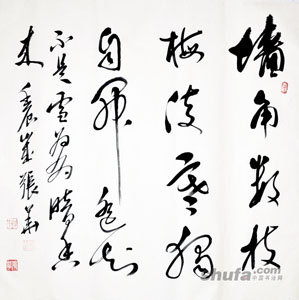 墙角数枝
梅凌寒独
自开遥知
不是雪为有暗香
来
张華
shufa.com
中国书法网